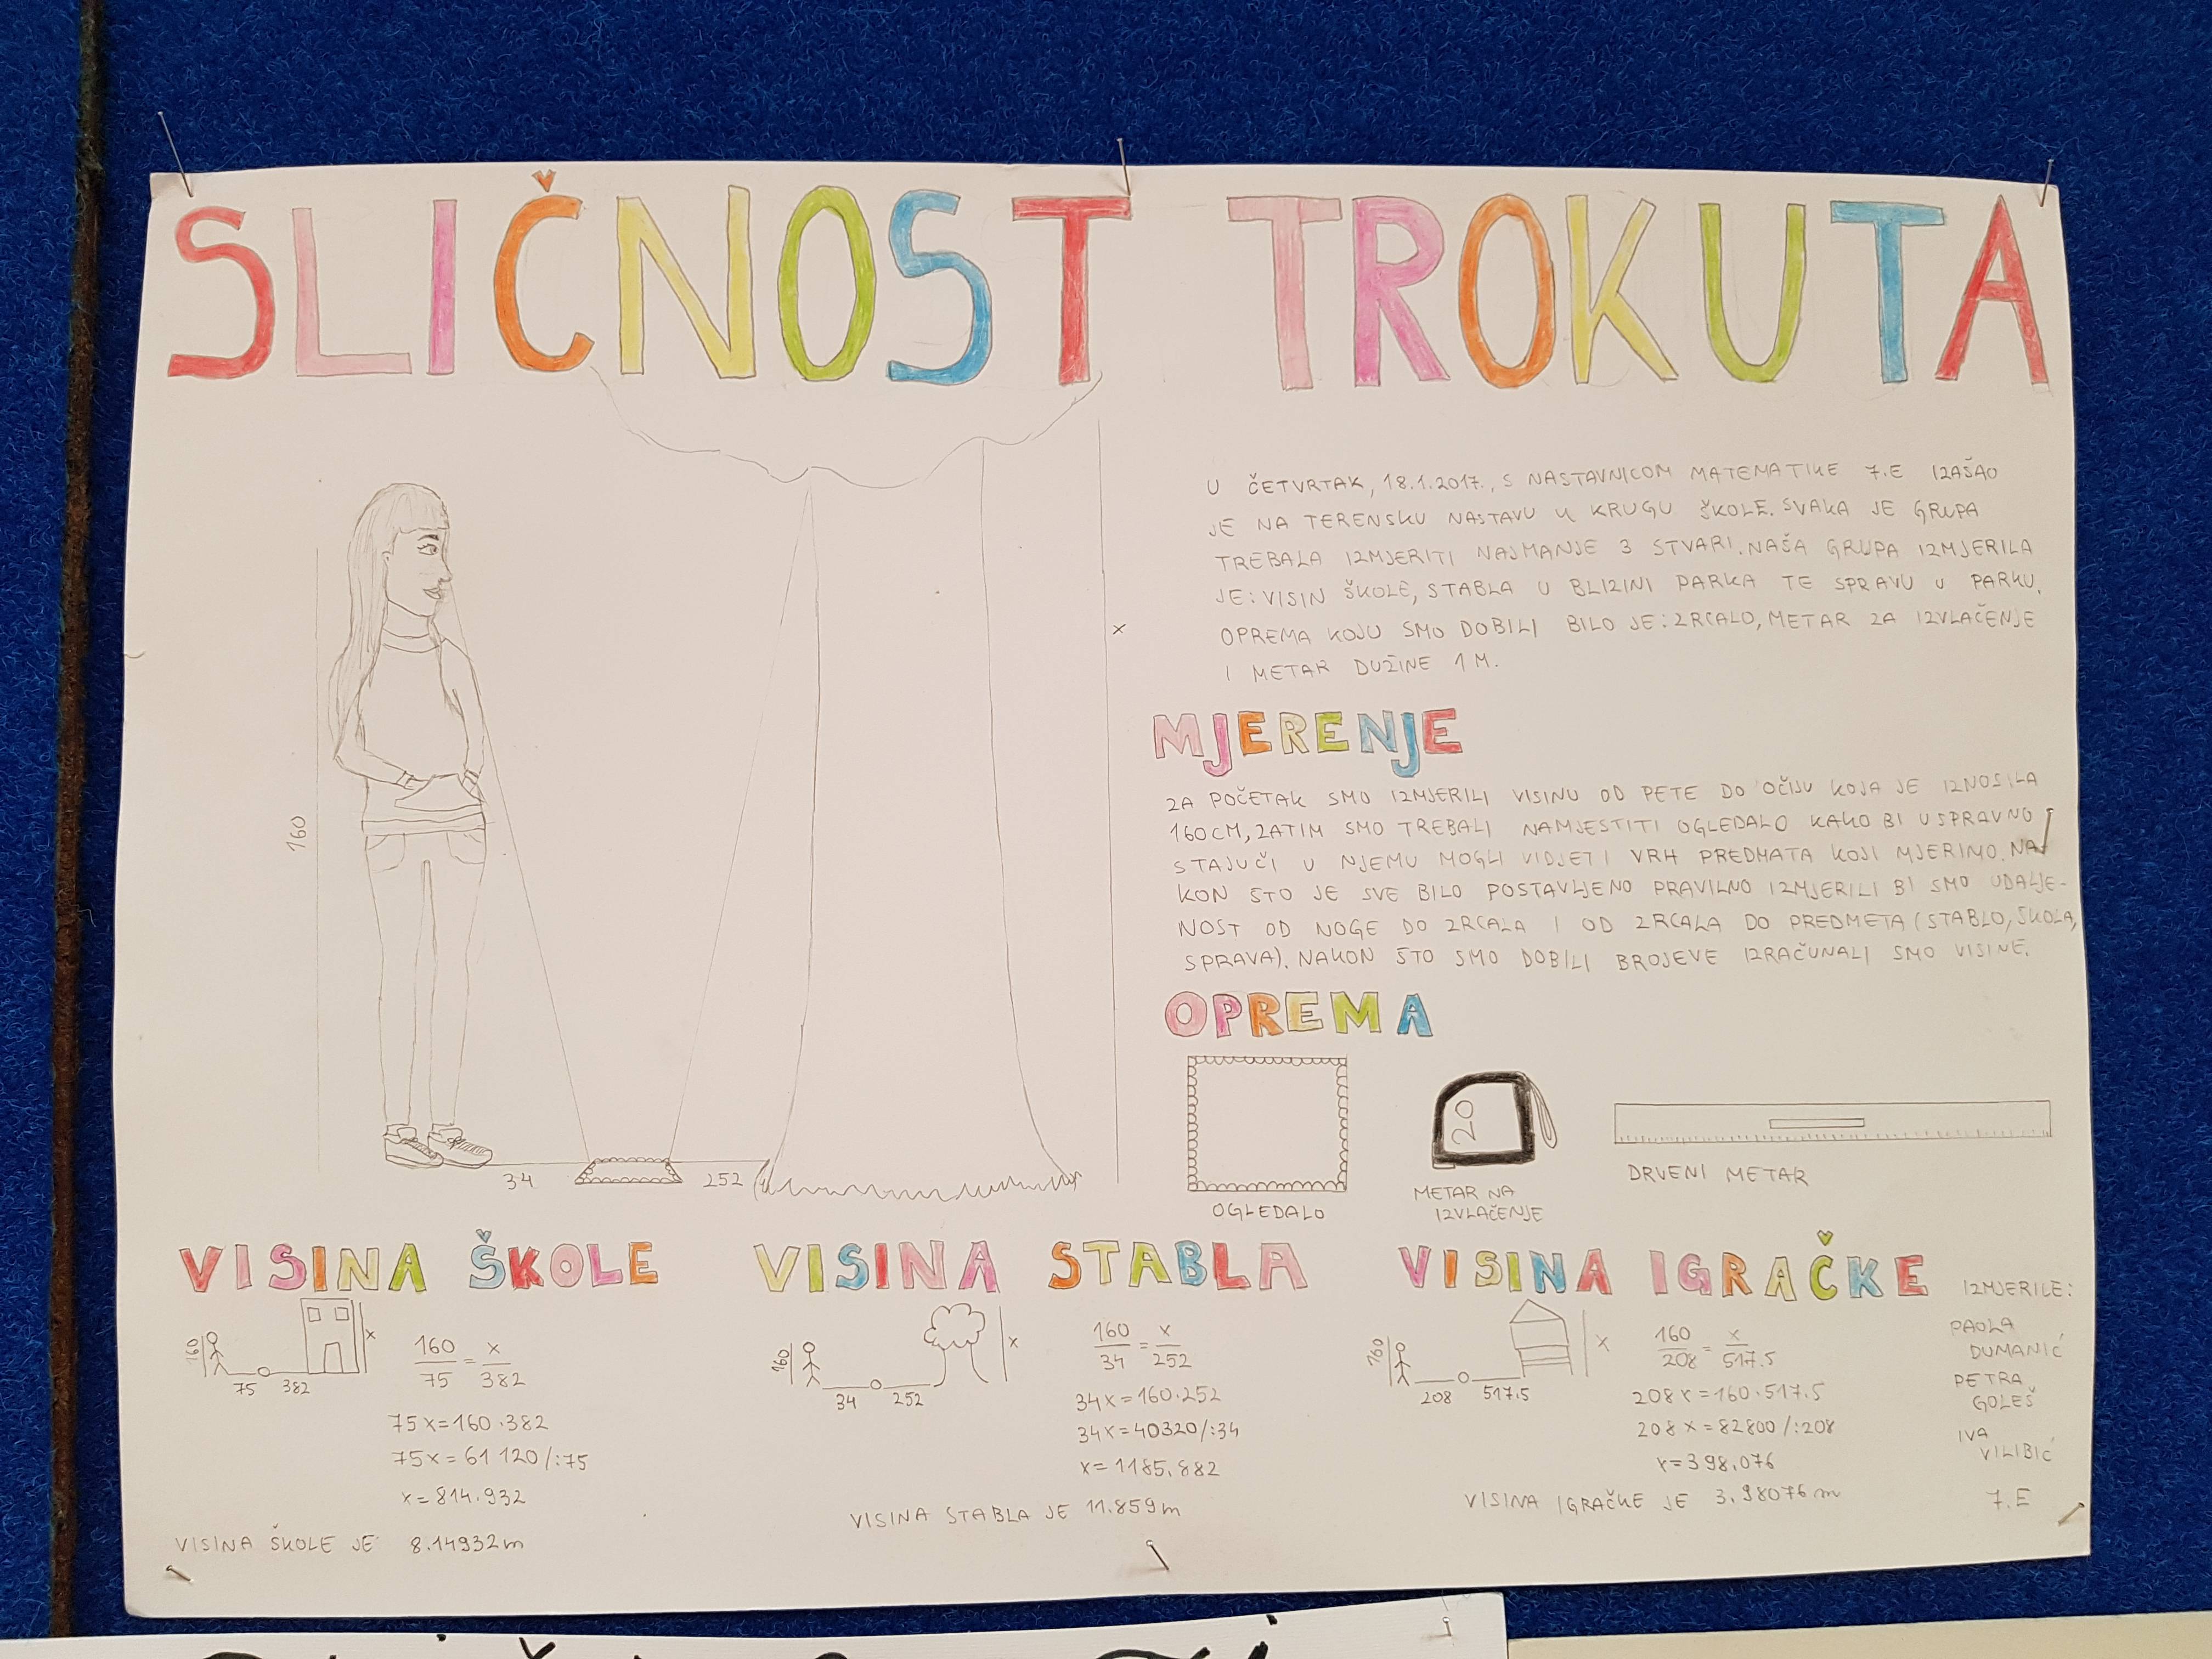 SLIČNOST TROKUTA
U ČETVRTAK, 18.1.2017., S NASTAVNICOM MATEMATIKE 7.E IZAŠAO
JE NA TERENSKU NASTAVU U KRUGU ŠKOLE. SVAKA JE GRUPA
TREBALA IZMJERITI NAJMANJE 3 STVARI. NAŠA GRUPA IZMJERILA
JE: VISIN ŠKOLE, STABLA U BLIZINI PARKA TE SPRAVU U PARKU.
OPREMA KOJU SMO DOBILI BILO JE: ZRCALO, METAR ZA IZVLAČENJE
I METAR DUŽINE 1 M.
160
x
34
252
MJERENJE
ZA POČETAK SMO IZMJERILI VISINU OD PETE DO OČIJU KOJA JE IZNOSILA
160CM, ZATIM SMO TREBALI NAMJESTITI OGLEDALO KAKO BI USPRAVNO
STAJUČI U NJEMU MOGLI VIDJETI VRH PREDMATA KOJI MJERIMO. NA
KON STO JE SVE BILO POSTAVLJENO PRAVILNO IZMJERILI BI SMO UDALJE-
NOST OD NOGE DO ZRCALA I OD ZRCALA DO PREDMETA (STABLO, ŠKOLA,
SPRAVA). NAKON STO SMO DOBILI BROJEVE IZRAČUNALI SMO VISINE.
OPREMA
20
OGLEDALO
METAR NA
IZVLAČENJE
DRVENI METAR
VISINA ŠKOLE
160
x
75 382
160/75 = x/382
75x=160·382
75x=61 120/:75
x=814.932
VISINA ŠKOLE JE 8.14932m
VISINA STABLA
160
x
34 252
160/34 = x/252
34x=160·252
34x=40320/:34
x=1185.882
VISINA STABLA JE 11.859m
VISINA IGRAČKE
160
x
208 517.5
160/208 = x/517.5
208x=160·517.5
208x=82800/:208
x=398.076
VISINA IGRAČKE JE 3.98076m
IZMJERILE:
PAOLA
DUMANIĆ
PETRA
GOLEŠ
IVA
VILIBIĆ
7.E